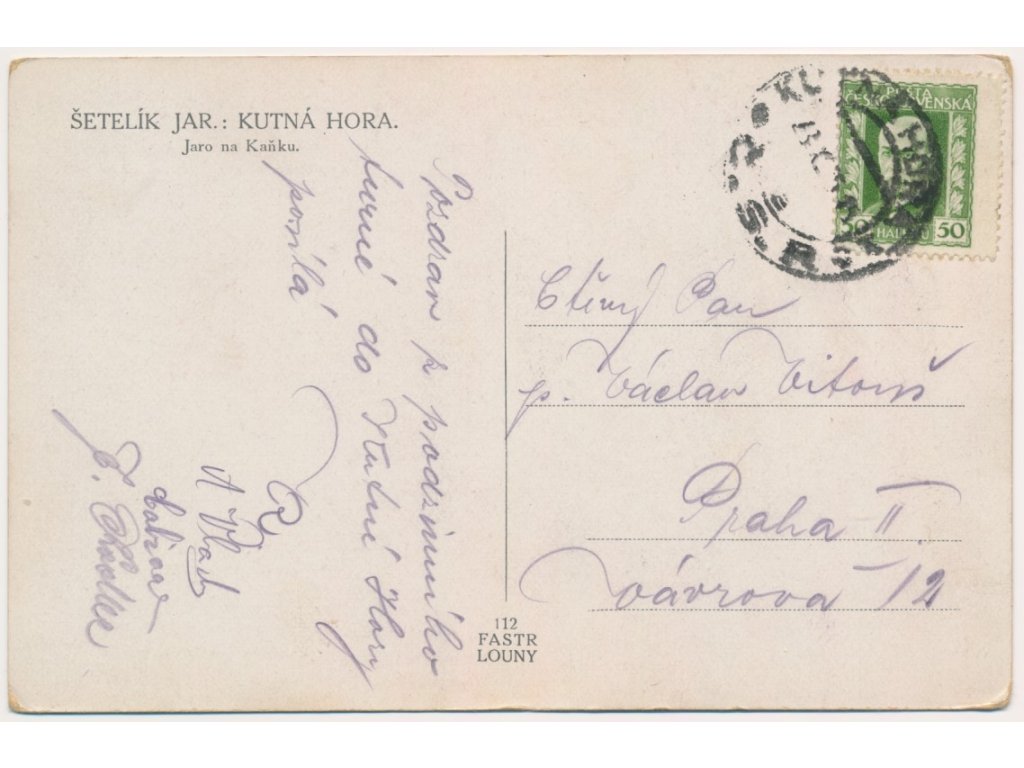 ŠETELÍK JAR.: KUTNÁ HORA.
Jaro na Kaňku.
Pozdrav z podzimního
turné do Kutné Hory
posílá
R
A Vlad
POŠTA
ČESKOSLOVENSKÁ
50 HALÉŘŮ 50
KUTNÁ HORA
Č.S.R.
Ctěný Pan
p. Václav Vitouš
Praha II.
Vávrova 12
112
FASTR
LOUNY